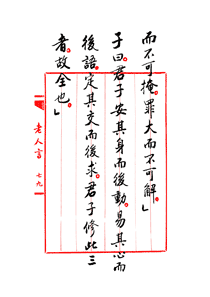 而不可掩。罪大而不可解」
子曰。君子安其身而後動。易其心而
後語。定其交而後求。君子修此三
者。故全也。」
老人言
七九